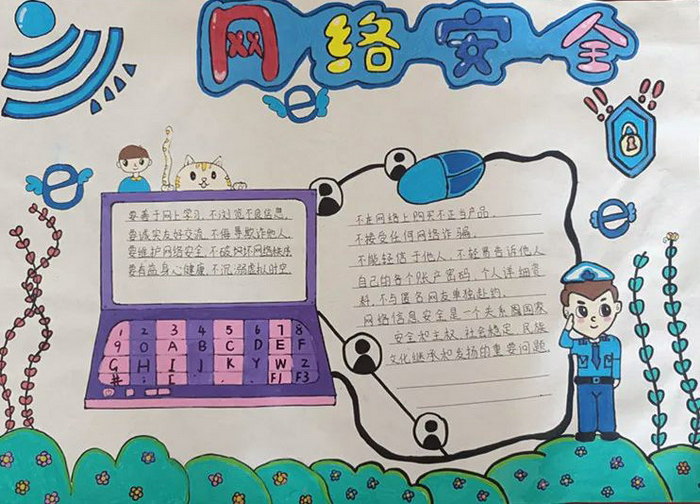 网络安全
要善于网上学习,不浏览不良信息,
要诚实友好交流,不侮辱欺诈他人,
要维护网络安全,不破坏网络秩序
要有益身心健康,不沉溺虚拟时空
1 2 3 4 5 6 7 8
9 0 A B C D E F
G H I J K Y W Z
F1 F3
不在网络上购买不正当产品,
不接受任何网络诈骗,
不能轻信于他人,不轻易告诉他人
自己的各个账产密码,个人详细资
料,不与匿名网友单独赴约,
网络信息安全是一个关系国国家
安全和主权,社会稳定,民族
文化继承和发扬的重要问题.